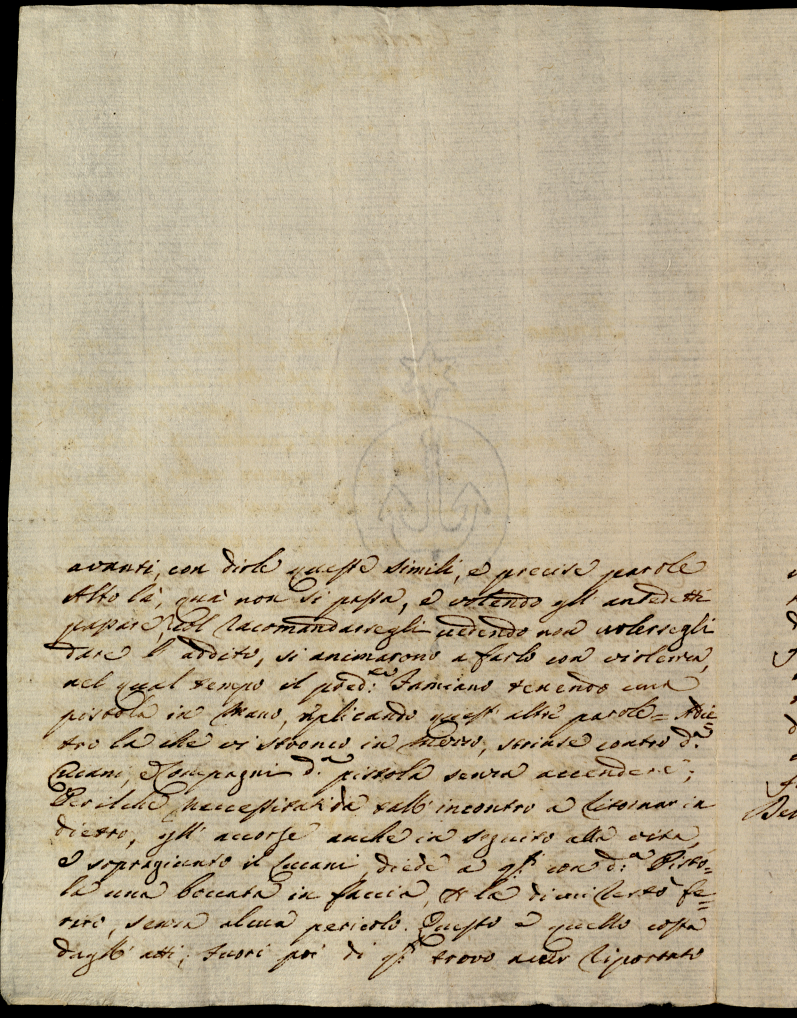 avanti, con dirle queste simili, e precise parole
Alto là, quà non si passa, e volendo gli antedetti
passare, col racomandarsegli vedendo non volersegli
dare l'addito, si animarono a farlo con violenza,
nel qual tempo il pred.º Damiano tenendo una
pistola in mano, replicando quest'altre parole=
tro là che vi stronco in mezzo, contro d.º
Cucani, e Compagni d.ª pistola senza accendere;
Perilche neccessitati da tall'incontro a ritornar in
dietro, gli accorse anche in seguito alla vita,
e sopragiunto il Cucani, diede a q.to con d.ª Pisto=
la una boccata in faccia, fe=
rito, senza alcun pericolo. Questo è quello costa
dagl'atti; fuori poi di q.to trovo aver riportato